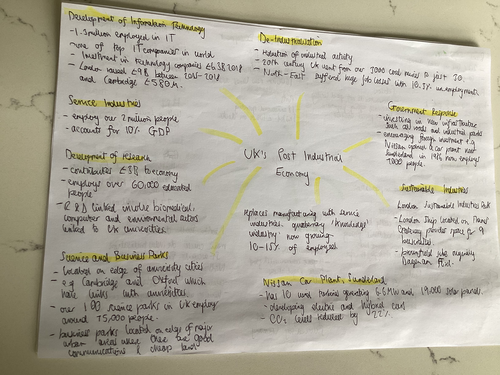 Development of Information Technology
- 1.3 million employed in IT
- one of top IT companies in world
- Investment in technology companies £6.3B 2018
- London raised £9B between 2015-2018
and Cambridge £580M.
Service Industries
- employ over 2 million people
- accounts for 10% GDP
Development of research
- contributes £3B to economy
- employs over 60,000 educated
people
- R & D linked involve biomedical,
computer and environmental
linked to UK universities.
Science and Business Parks
- located on edge of university cities
- e.g Cambridge and Oxford which
have links with universities.
- over 100 science parks in UK employ
around 75,000 people.
- business parks located on edge of major
urban areas where there are good
communications & cheap land
De-Industrialisation
- Reduction of industrial activity
- 20th century UK went from over 3000 coal mines to just 30
- North-East suffered huge job losses with 10.5% unemployment.
UK's Post Industrial
Economy
replaces manufacturing with service
industries. quaternary 'knowledge'
industry now growing
10-15% of employed
Government Response
- investing in new infrastructure
such as roads and industrial parks
- encouraging foreign investment e.g
Nissan opened a car plant near
Sunderland in 1986 now employs
7000 people.
Sustainable Industries
London Sustainable Industries Park
- London SIP located on Thames
Gateway provides space for 9
businesses
- brownfield site originally
Dagenham
Nissan Car Plant, Sunderland
- has 10 wind turbines generating 6.6MW and 19,000 solar panels
- developing electric and hybrid cars
- CO2 levels reduced by 22%